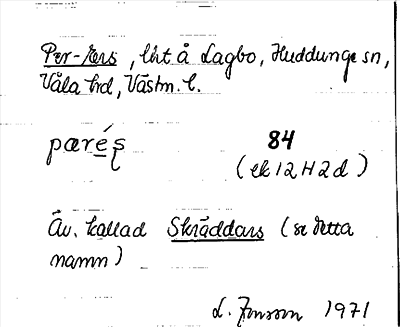 Per-Ers, lht å Lagbo, Huddunge sn,
Våla hd, Västm. l.
pær é̱ș 84
(ek 12H2d)
Äv. kallad Skräddars (se detta
namn)
L. Jonsson 1971